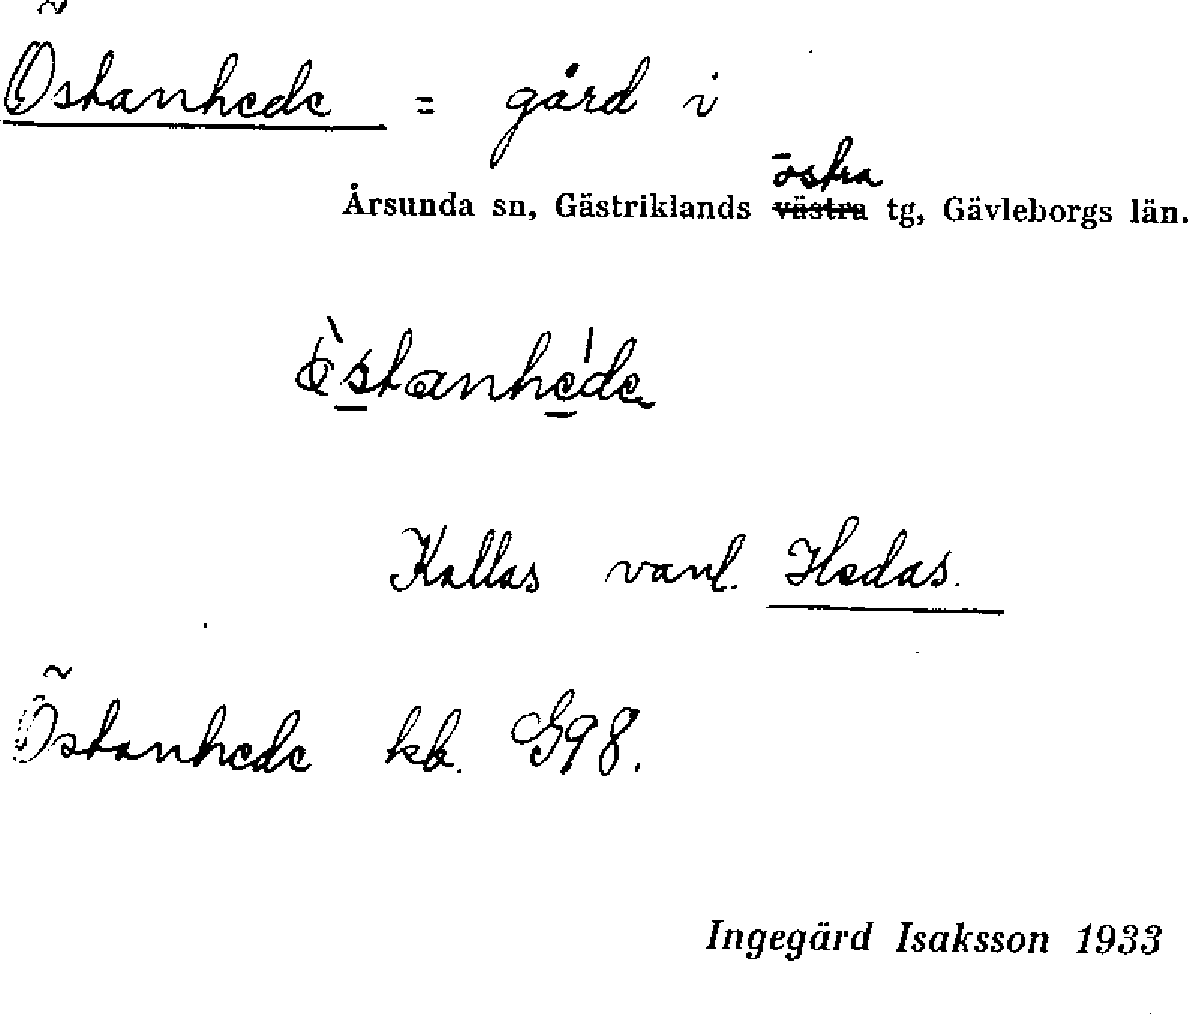 Östanhede = gård i
östra
Årsunda sn, Gästriklands västra tg, Gävleborgs län.
Kallas vanl. Hedas.
Östanhede kb. G98.
Ingegärd Isaksson 1933